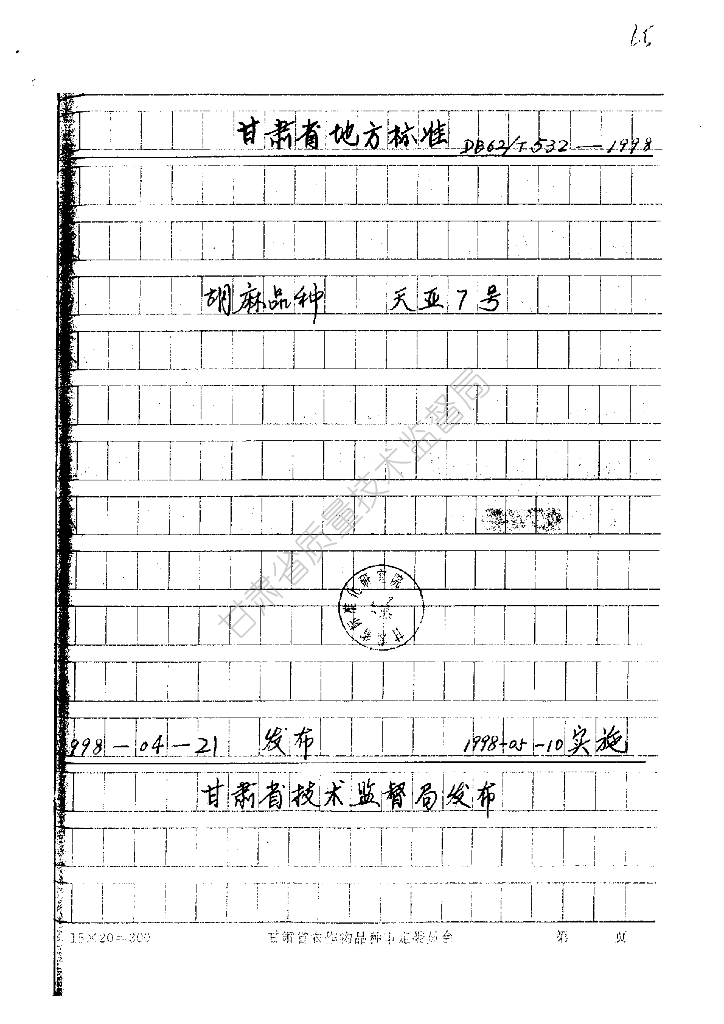 65
甘肃省地方标准 DB62/T532—1998
胡麻品种 天亚7号
甘肃省质量技术监督局
998-04-21 发布 1998-05-10实施
甘肃省技术监督局发布
15×20=300 甘肃省农作物品种审定委员会 第 页